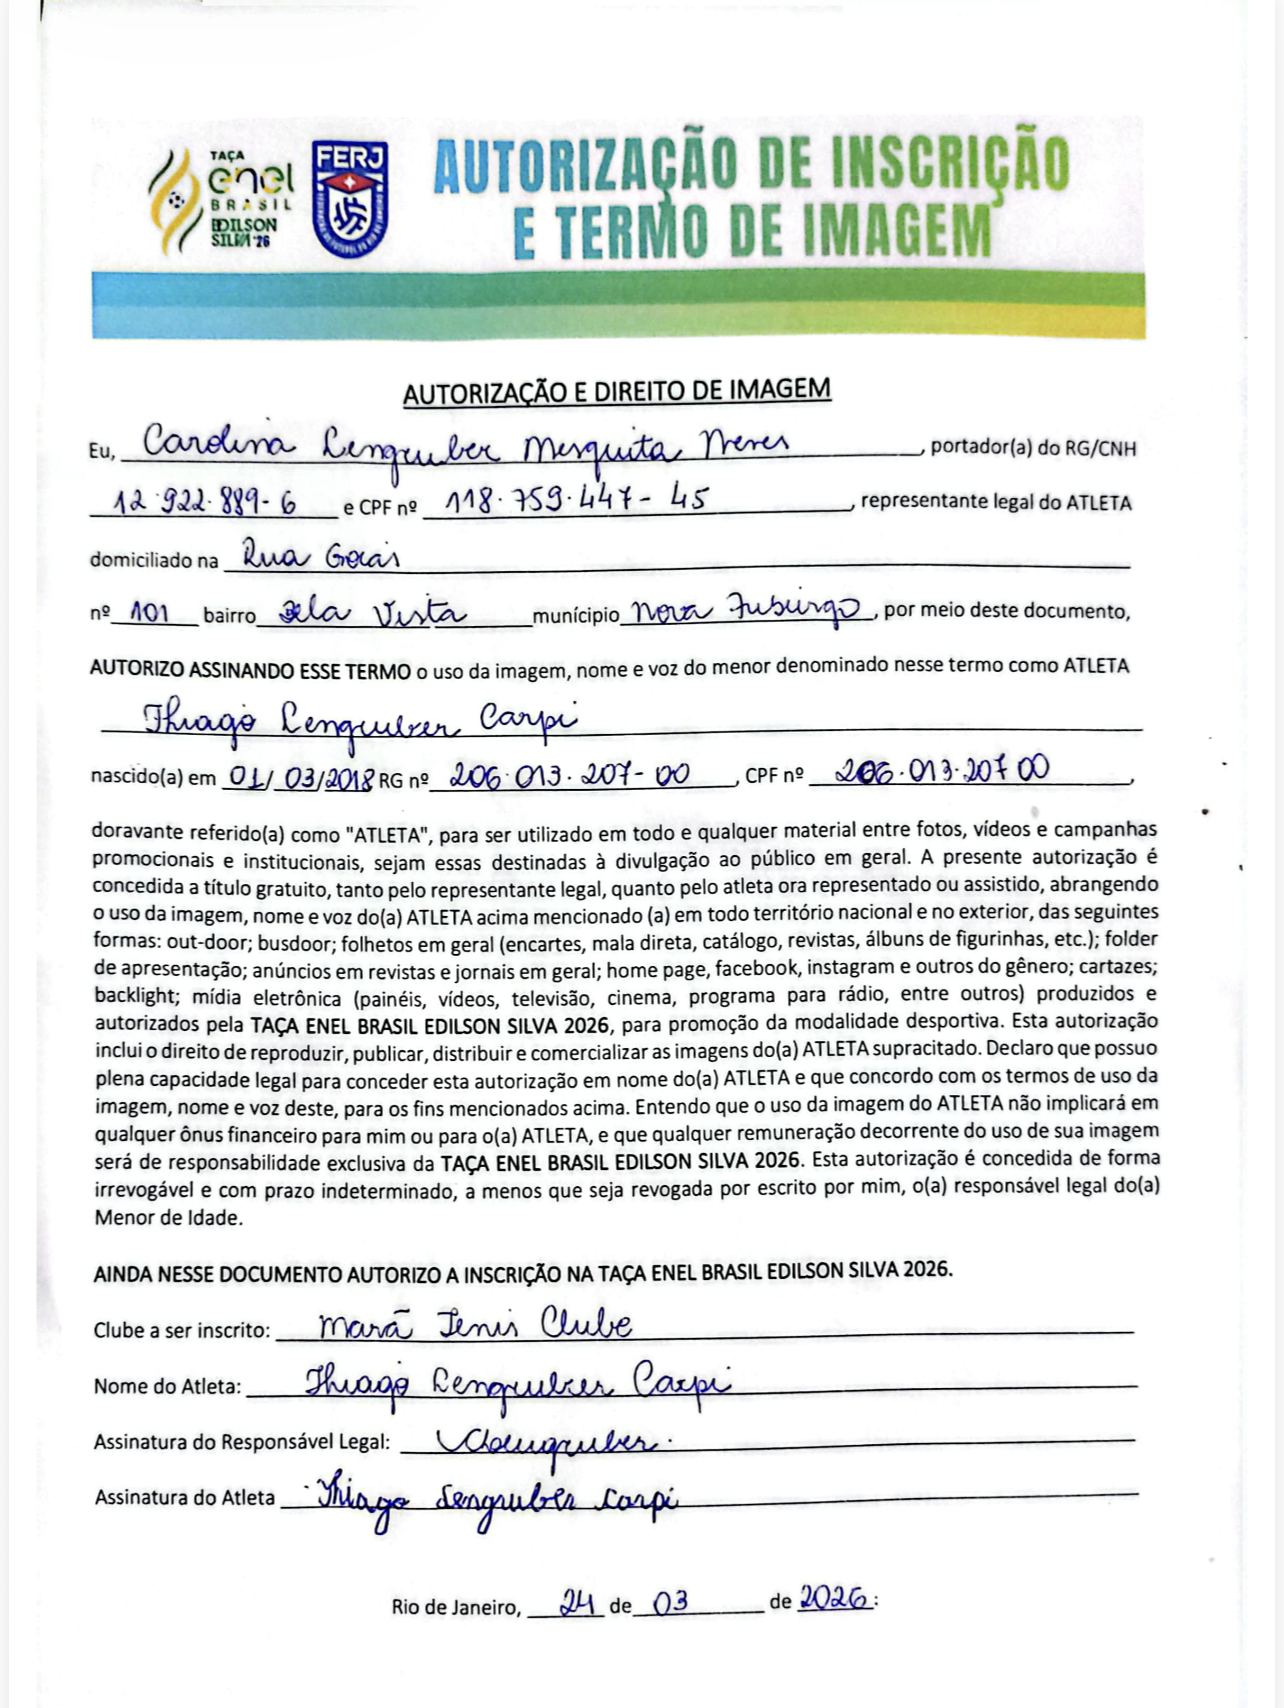 TAÇA
enel
BRASIL
EDILSON
SILVA '26
FERJ
AUTORIZAÇÃO DE INSCRIÇÃO
E TERMO DE IMAGEM
AUTORIZAÇÃO E DIREITO DE IMAGEM
Eu, Carolina Lengruber Mesquita Neves, portador(a) do RG/CNH
12.922.889-6 e CPF nº 118.759.447-45, representante legal do ATLETA
domiciliado na Rua Goias
nº 101 bairro Bela Vista munícipio Nova Fuburgo, por meio deste documento,
AUTORIZO ASSINANDO ESSE TERMO o uso da imagem, nome e voz do menor denominado nesse termo como ATLETA
Thiago Lengruber Carpi
nascido(a) em 01/03/2018 RG nº 206.013.207-00, CPF nº 206.013.207 00,
doravante referido(a) como "ATLETA", para ser utilizado em todo e qualquer material entre fotos, vídeos e campanhas
promocionais e institucionais, sejam essas destinadas à divulgação ao público em geral. A presente autorização é
concedida a título gratuito, tanto pelo representante legal, quanto pelo atleta ora representado ou assistido, abrangendo
o uso da imagem, nome e voz do(a) ATLETA acima mencionado (a) em todo território nacional e no exterior, das seguintes
formas: out-door; busdoor; folhetos em geral (encartes, mala direta, catálogo, revistas, álbuns de figurinhas, etc.); folder
de apresentação; anúncios em revistas e jornais em geral; home page, facebook, instagram e outros do gênero; cartazes;
backlight; mídia eletrônica (painéis, vídeos, televisão, cinema, programa para rádio, entre outros) produzidos e
autorizados pela TAÇA ENEL BRASIL EDILSON SILVA 2026, para promoção da modalidade desportiva. Esta autorização
inclui o direito de reproduzir, publicar, distribuir e comercializar as imagens do(a) ATLETA supracitado. Declaro que possuo
plena capacidade legal para conceder esta autorização em nome do(a) ATLETA e que concordo com os termos de uso da
imagem, nome e voz deste, para os fins mencionados acima. Entendo que o uso da imagem do ATLETA não implicará em
qualquer ônus financeiro para mim ou para o(a) ATLETA, e que qualquer remuneração decorrente do uso de sua imagem
será de responsabilidade exclusiva da TAÇA ENEL BRASIL EDILSON SILVA 2026. Esta autorização é concedida de forma
irrevogável e com prazo indeterminado, a menos que seja revogada por escrito por mim, o(a) responsável legal do(a)
Menor de Idade.
AINDA NESSE DOCUMENTO AUTORIZO A INSCRIÇÃO NA TAÇA ENEL BRASIL EDILSON SILVA 2026.
Clube a ser inscrito: Marã Tenis Clube
Nome do Atleta: Thiago Lengruber Carpi
Assinatura do Responsável Legal: CLengruber.
Assinatura do Atleta Thiago Lengruber Carpi
Rio de Janeiro, 24 de 03 de 2026.